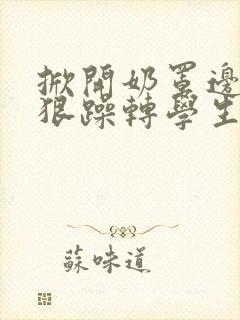 掀開奶罩邊
狠躁轉學生
蘇味道